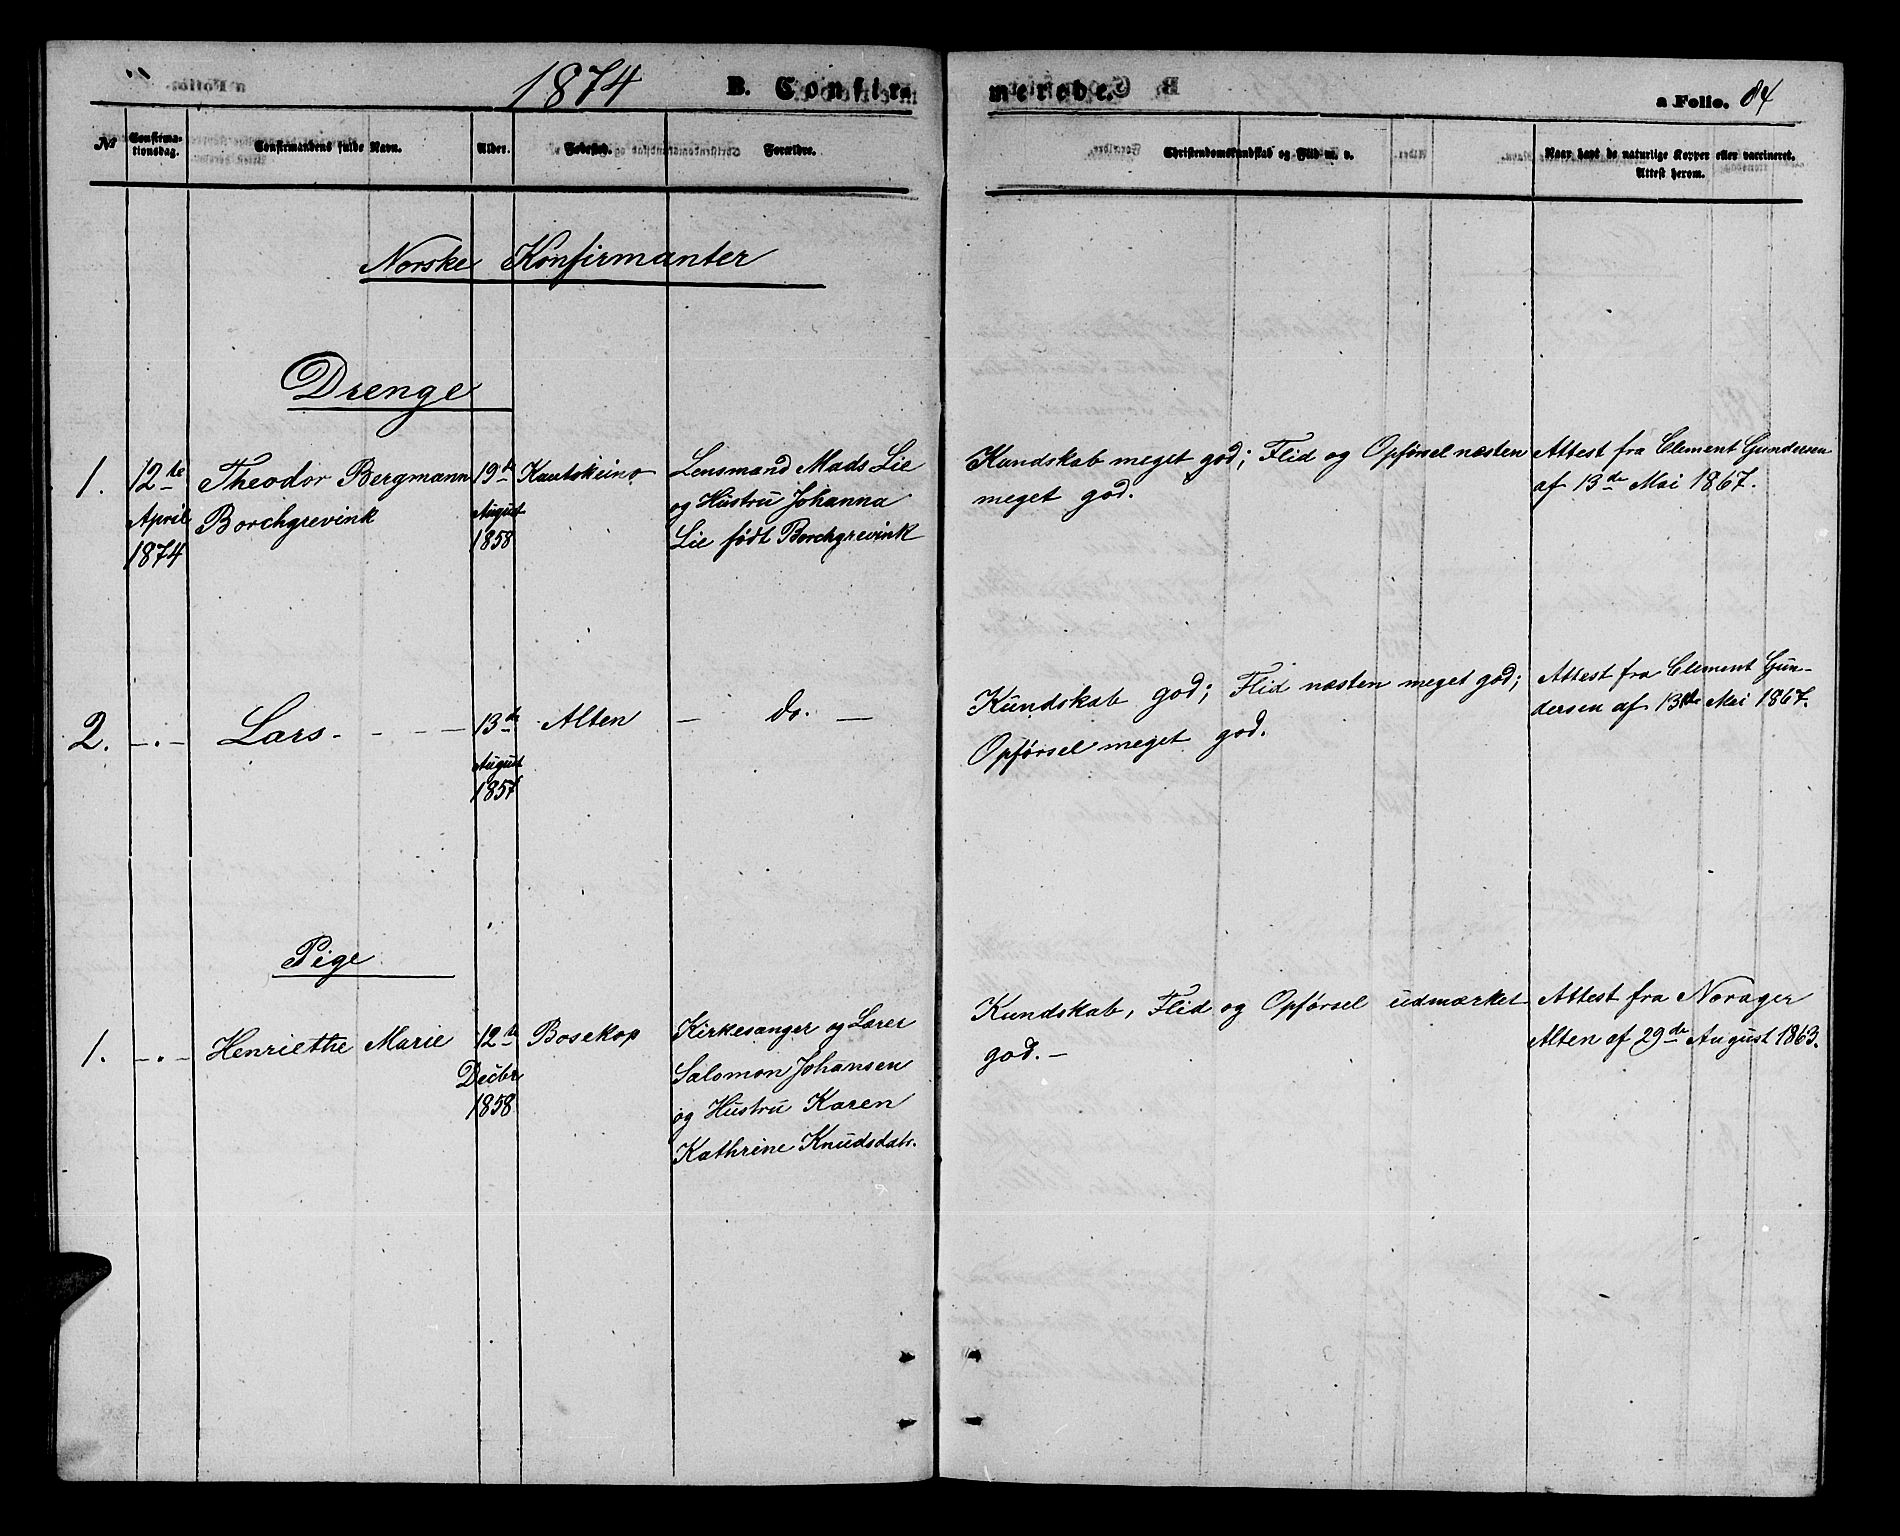 1874 B. Confirmerede. a Folio. 84
No Confirma-
tionsdag. Confirmandens fulde Navn. Alder. Fødested. Forældre. Christendomskundskab og Flid m. v. Naar havt de naturlige Kopper eller vaccineret.
Attest herom.
Norske Konfirmanter
Drenge
1. 12te
April
1874
Theodor Bergmann
Borchgrevink
19de
August
1858
Kautokeino
Lensmand Mads Lie
og Hustru Johanna
Lie født Borchgrevink
Kundskab meget god; Flid og Opførsel næsten
meget god.
Attest fra Clement Gundersen
af 13de Mai 1867.
2. -"- Lars - - - -
13de
August
1857
Alten
- do. -
Kundskab god; Flid næsten meget god;
Opførsel meget god.
Attest fra Clement Gun-
dersen af 13de Mai 1867.
Pige
1. -"- Henriethe Marie
12te
Decbr
1858
Bosekop
Kirkesanger og Lærer
Salomon Johansen
og Hustru Karen
Kathrine Knudsdatr.
Kundskab, Flid og Opførsel udmærket
god. -
Attest fra Norager
Alten af 29de August 1863.